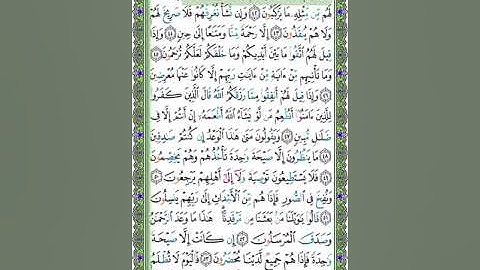 لَهُم مِّن مِّثْلِهِۦ مَا يَرْكَبُونَ ﴿٤٢﴾ وَإِن نَّشَأْ نُغْرِقْهُمْ فَلَا صَرِيخَ لَهُمْ
وَلَا هُمْ يُنقَذُونَ ﴿٤٣﴾ إِلَّا رَحْمَةً مِّنَّا وَمَتَٰعًا إِلَىٰ حِينٍ ﴿٤٤﴾ وَإِذَا
قِيلَ لَهُمُ ٱتَّقُوا۟ مَا بَيْنَ أَيْدِيكُمْ وَمَا خَلْفَكُمْ لَعَلَّكُمْ تُرْحَمُونَ ﴿٤٥﴾
وَمَا تَأْتِيهِم مِّنْ ءَايَةٍ مِّنْ ءَايَٰتِ رَبِّهِمْ إِلَّا كَانُوا۟ عَنْهَا مُعْرِضِينَ
﴿٤٦﴾ وَإِذَا قِيلَ لَهُمْ أَنفِقُوا۟ مِمَّا رَزَقَكُمُ ٱللَّهُ قَالَ ٱلَّذِينَ كَفَرُوا۟
لِلَّذِينَ ءَامَنُوٓا۟ أَنُطْعِمُ مَن لَّوْ يَشَآءُ ٱللَّهُ أَطْعَمَهُۥٓ إِنْ أَنتُمْ إِلَّا فِى
ضَلَٰلٍ مُّبِينٍ ﴿٤٧﴾ وَيَقُولُونَ مَتَىٰ هَٰذَا ٱلْوَعْدُ إِن كُنتُمْ صَٰدِقِينَ
﴿٤٨﴾ مَا يَنظُرُونَ إِلَّا صَيْحَةً وَٰحِدَةً تَأْخُذُهُمْ وَهُمْ يَخِصِّمُونَ
﴿٤٩﴾ فَلَا يَسْتَطِيعُونَ تَوْصِيَةً وَلَآ إِلَىٰٓ أَهْلِهِمْ يَرْجِعُونَ ﴿٥٠﴾
وَنُفِخَ فِى ٱلصُّورِ فَإِذَا هُم مِّنَ ٱلْأَجْدَاثِ إِلَىٰ رَبِّهِمْ يَنسِلُونَ
﴿٥١﴾ قَالُوا۟ يَٰوَيْلَنَا مَنۢ بَعَثَنَا مِن مَّرْقَدِنَا ۜ هَٰذَا مَا وَعَدَ ٱلرَّحْمَٰنُ
وَصَدَقَ ٱلْمُرْسَلُونَ ﴿٥٢﴾ إِن كَانَتْ إِلَّا صَيْحَةً
وَٰحِدَةً فَإِذَا هُمْ جَمِيعٌ لَّدَيْنَا مُحْضَرُونَ ﴿٥٣﴾ فَٱلْيَوْمَ لَا تُظْلَمُ